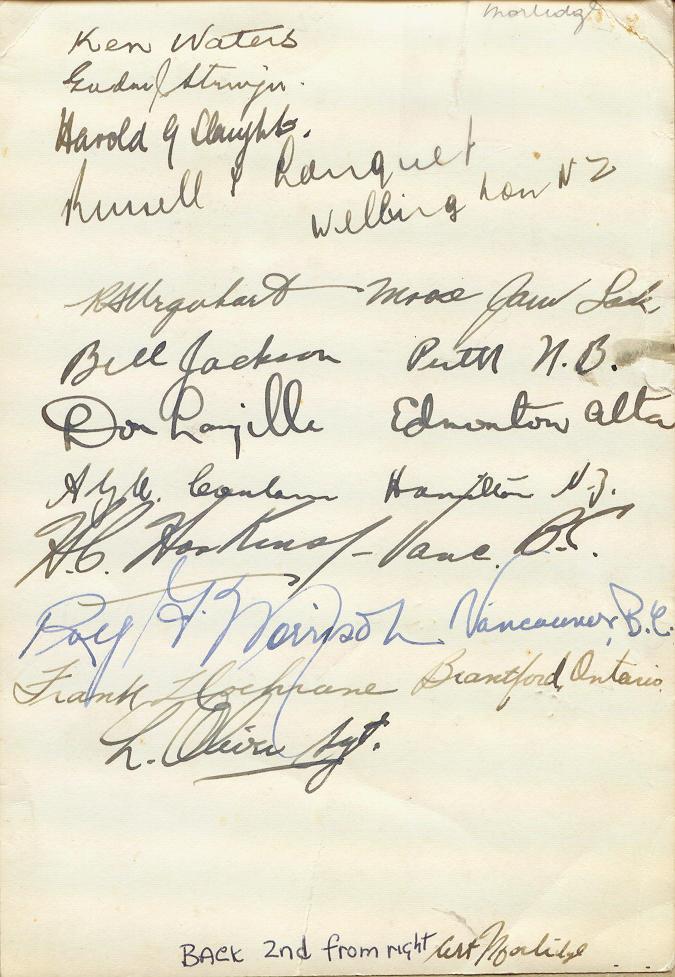 Morlidge
Ken Waters
Harold G Slaught
Russell Ranquet
Wellington NZ
R.S. Urquhart Moose Jaw Sask
Bill Jackson Perth N.B.
Don Edmonton Alta
Hamilton N.Z.
H.C. Hoskins Vanc. B.C.
Roly G. Morrison Vancouver, B.C.
Frank Cochrane Brantford, Ontario
L. Sgt.
BACK 2nd from right Art Morlidge